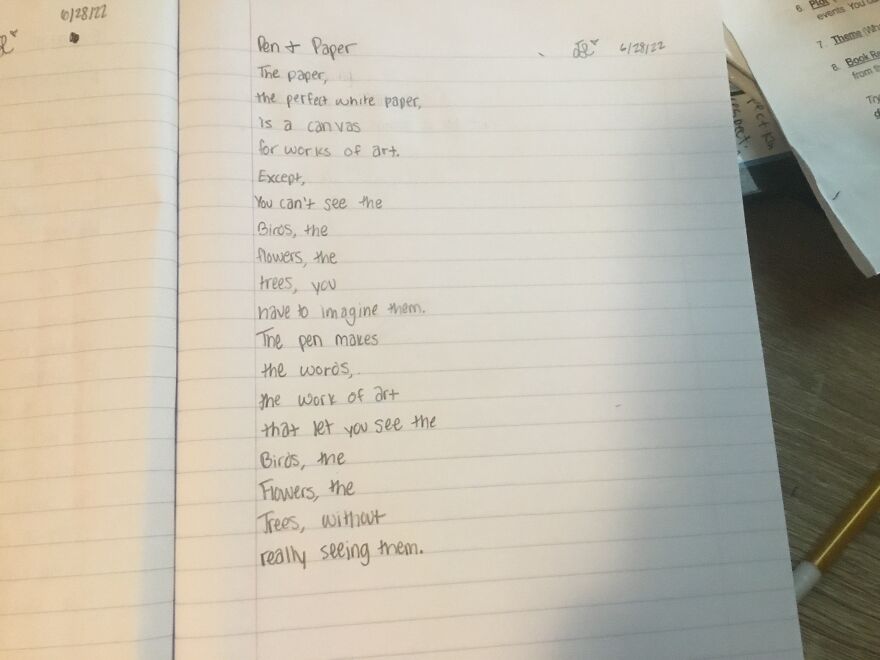 6/28/22
Pen + Paper 6/28/22
The paper,
the perfect white paper,
is a canvas
for works of art.
Except,
You can't see the
Birds, the
flowers, the
trees, you
have to imagine them.
The pen makes
the words,
the work of art
that let you see the
Birds, the
Flowers, the
Trees, without
really seeing them.
6. Plot
events. You
7. Theme
8. Book
from